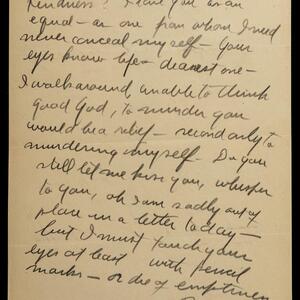 Kindness? I love you as an
equal — as one from whom I need
never conceal myself — Your
eyes know life — dearest one —
I walk around, unable to think
good God, to murder you
would be a relief — second only to
murdering myself. Do you
still let me kiss you, whisper
to you, oh I am sadly out of
place in a letter today —
but I must touch your
eyes at least with pencil
marks — or die of emptiness